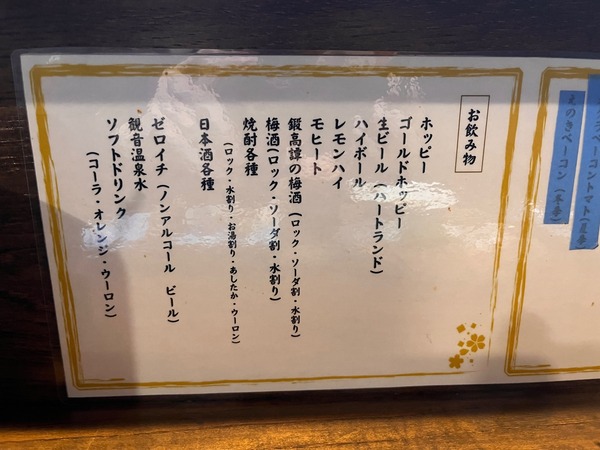 お飲み物
ホッピー
ゴールドホッピー
生ビール（ハートランド）
ハイボール
レモンハイ
モヒート
鍛高譚の梅酒（ロック・ソーダ割・水割り）
梅酒（ロック・ソーダ割・水割り）
焼酎各種
（ロック・水割り・お湯割り・あしたか・ウーロン）
日本酒各種
ゼロイチ（ノンアルコール ビール）
観音温泉水
ソフトドリンク
（コーラ・オレンジ・ウーロン）
えのきベーコン